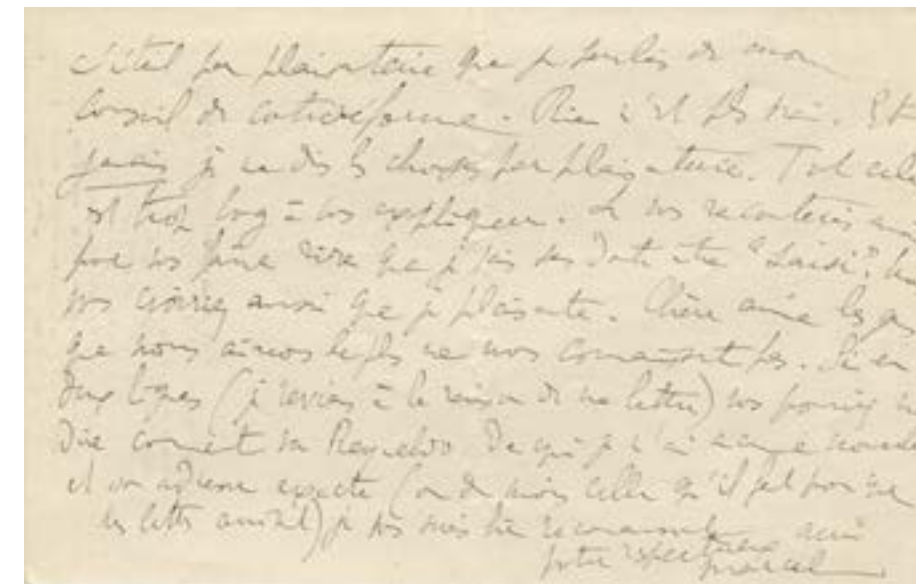 c'était par plaisanterie que je parlais de mon
conseil de contreréforme. Rien n'est plus vrai. Et
jamais je ne dis les choses par plaisanterie. Tout cela
est trop long à vous expliquer. Je vous raconterais
pour vous faire rire que je suis sans doute être "saisi",
vous croiriez aussi que je plaisante. Chère amie les gens
que nous aimons le plus ne nous connaissent pas. Si en
deux lignes (je reviens à la raison de ma lettre) vous pouviez me
dire comment va Reynaldo de qui je n'ai aucune nouvelle
et son adresse exacte (ou du moins celle qu'il faut pour que
les lettres arrivent) je vous serais bien reconnaissant
Votre respectueux ami
Marcel